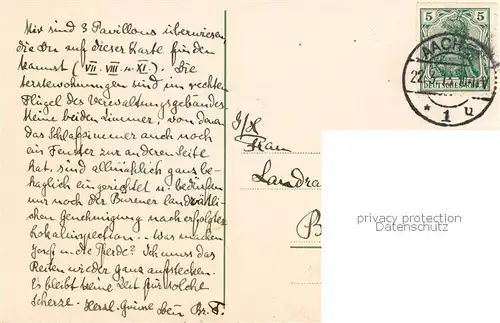 Mir sind 3 Pavillons überwiesen,
die Du auf dieser Karte finden
kannst (VII. VIII. u. XI.). Die
Ärztewohnungen sind im rechten
Flügel des Verwaltungsgebäudes
Meine beiden Zimmer, von denen
das Schlafzimmer auch noch
ein Fenster zur anderen Seite
hat, sind allmählich ganz be-
haglich eingerichtet u. bedürfen
nur noch der Burener landrätli-
chen Genehmigung nach erfolgter
Lokalinspection. Was machen
u. die Pferde? Ich muss das
Reiten wieder ganz aufstecken.
Es bleibt keine Zeit für solche
Scherze. Herzl. Grüsse Dein Br. F.
Frau
Landra
B
5 5
DEUTSCHES REICH
AACHEN
22.
* 1 u
privacy protection
Datenschutz